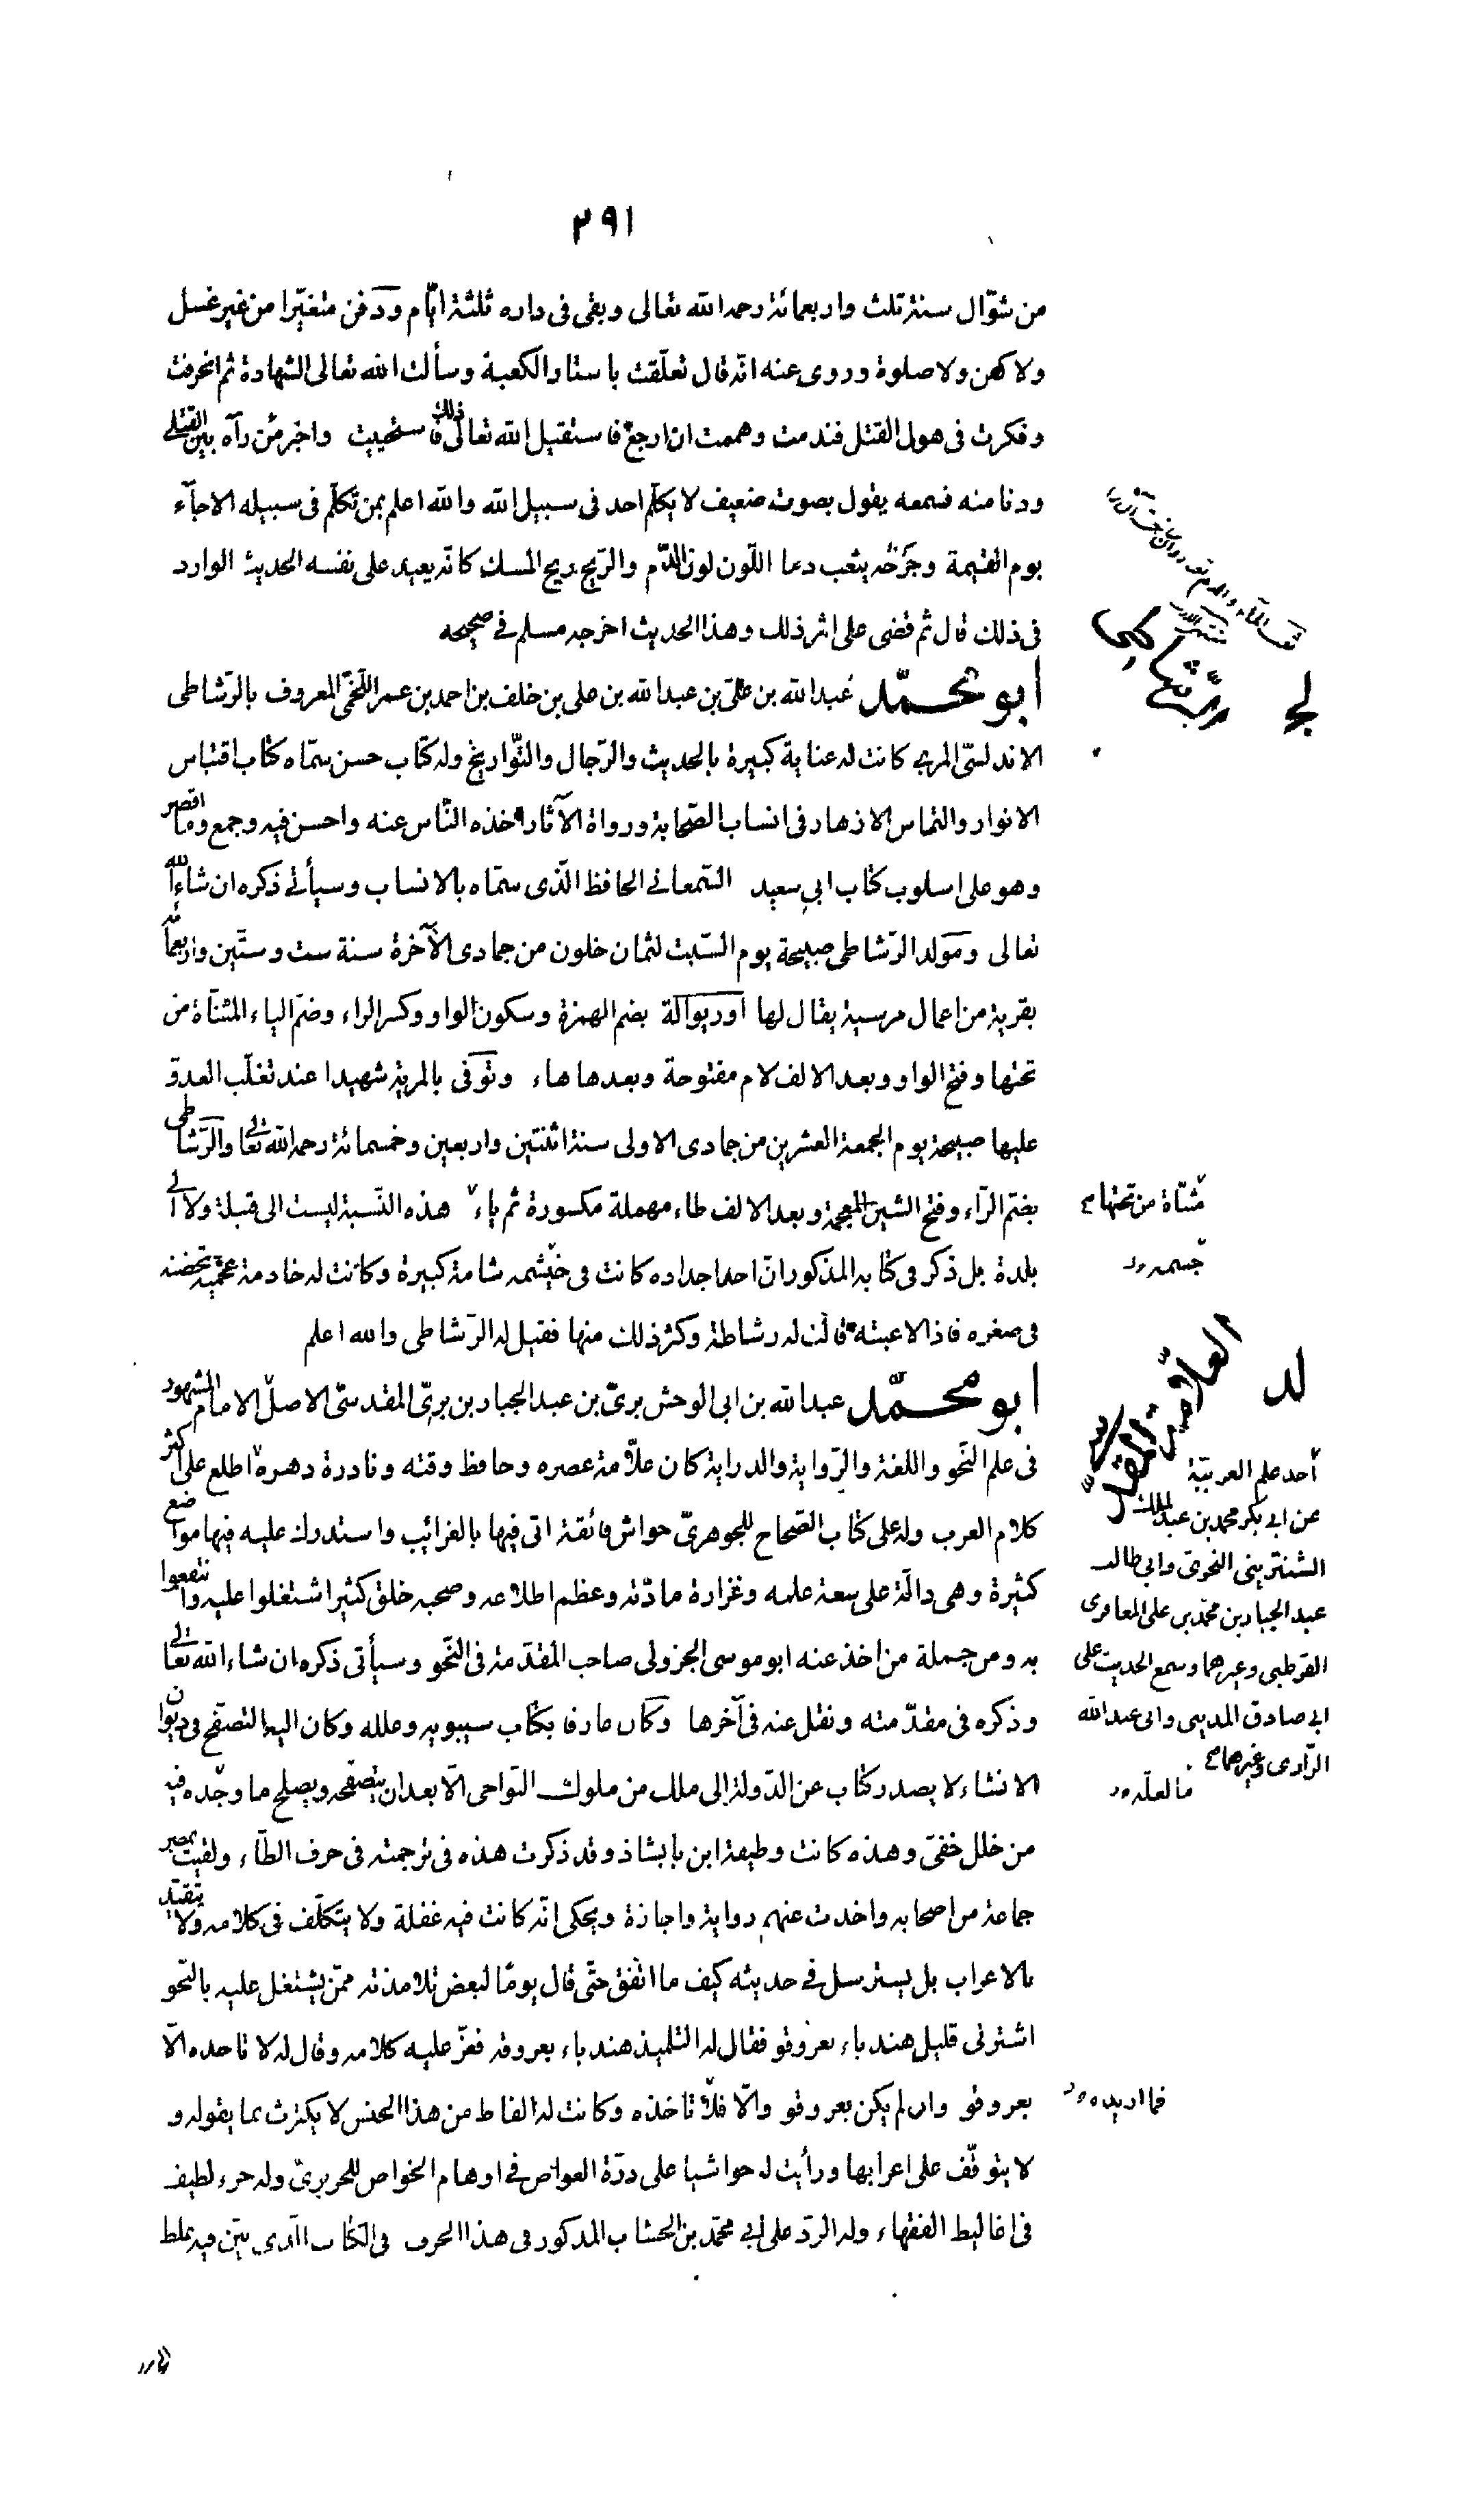 ٢٩١
من شوّال سنة ثلث واربعمائة رحمه الله تعالى وبقى فى داره ثلثة ايّام ودفن متغيّرا من غير غسل
ولا كفن ولا صلوة وروى عنه انّه قال تعلّقت باستار الكعبة وسألت الله تعالى الشهادة ثم انحرفت
وفكرت فى هول القتل فندمت وهممت ان ارجع فاستقيل الله تعالى ذلك فاستحييت واخبر من رآه بين القتلى
ودنا منه فسمعه يقول بصوت ضعيف لا يكلّم احد فى سبيل الله والله اعلم بمن تكلّم فى سبيله الا جآء
يوم القيمة وجرحه يثعب دما اللّون لون الدّم والرّيح ريح المسك كانّه يعيد على نفسه الحديث الوارد
فى ذلك قال ثم قضى على اثر ذلك وهذا الحديث اخرجه مسلم فى صحيحه
الرّشاطى
لج
أبو محمّد عبد الله بن علىّ بن عبد الله بن على بن خلف بن احمد بن عمر اللّخمىّ المعروف بالرّشاطى
الاندلسىّ المرىّ كانت له عناية كبيرة بالحديث والرّجال والتّواريخ وله كتاب حسن سمّاه كتاب اقتباس
الانوار والتماس الازهار فى انساب الصّحابة ورواة الآثار اخذه النّاس عنه واحسن فيه وجمع وما اقصر
وهو على اسلوب كتاب ابى سعيد السّمعانى الحافظ الّذى سمّاه بالانساب وسيأتى ذكره ان شاء الله
تعالى ومولد الرّشاطى صبيحة يوم السّبت لثمان خلون من جمادى الآخرة سنة ست وستّين واربعمائة
بقرية من اعمال مرسية يقال لها اوريوالة بضم الهمزة وسكون الواو وكسر الراء وضمّ الياء المثنّاة من
تحتها وفتح الواو وبعد الالف لام مفتوحة وبعدها هاء وتوفى بالمرية شهيدا عند تغلّب العدوّ
عليها صبيحة يوم الجمعة العشرين من جمادى الاولى سنة اثنتين واربعين وخمسمائة رحمه الله تعالى والرّشاطى
بضمّ الرّاء وفتح الشين المعجمة وبعد الالف طاء مهملة مكسورة ثم ياء هذه النّسبة ليست الى قبيلة ولا الى
مثنّاة من تحتها صح
بلدة بل ذكر فى كتابه المذكور انّ احد اجداده كانت فى جسمه شامة كبيرة وكانت له خادمة عجميّة تحضنه
جسمه
فى صغره فاذا لاعبته قالت له رشاطة وكثر ذلك منها فقيل له الرّشاطى والله اعلم
لد
العلّامة
أبو محمّد عبد الله بن ابى الوحش برىّ بن عبد الجبار بن برىّ المقدسىّ الاصل الامام المشهور
فى علم النّحو واللغة والرّواية والدراية كان علّامة عصره وحافظ وقته ونادرة دهره اطلع على اكثر
كلام العرب وله على كتاب الصّحاح للجوهرىّ حواش فائقة اتى فيها بالغرائب واستدرك عليه فيها مواضع
كثيرة وهى دالّة على سعة علمه وغزارة مادّته وعظم اطلاعه وصحبه خلق كثير اشتغلوا عليه وانتفعوا
به ومن جملة من اخذ عنه ابو موسى الجزولى صاحب المقدّمة فى النّحو وسيأتى ذكره ان شاء الله تعالى
وذكره فى مقدّمته ونقل عنه فى آخرها وكان عارفا بكتاب سيبويه وعلله وكان اليه التصفّح فى ديوان
الانشاء لا يصدر كتاب عن الدّولة الى ملك من ملوك النّواحى الّا بعد ان يتصفّحه ويصلح ما وجده فيه
من خلل خفىّ وهذه كانت وظيفة ابن بابشاذ وقد ذكرت هذه فى ترجمته فى حرف الطآء ولقيت بمصر
جماعة من اصحابه واخذت عنهم رواية واجازة ويحكى انّه كانت فيه غفلة ولا يتكلّف فى كلامه ولا يتقيّد
بالاعراب بل يسترسل فى حديثه كيف ما اتّفق حتّى قال يوما لبعض تلامذته ممّن يشتغل عليه بالنّحو
اشتر لى قليل هندباء بعروقو فقال له التلميذ هندباء بعروقه فعزّ عليه كلامه وقال له لا تاخذه الّا
بعروقو وان لم يكن بعروقو والّا فلا تاخذه وكانت له الفاظ من هذا الجنس لا يكترث بما يقوله و
فما اريده
لا يتوقّف على اعرابها ورأيت له حواشيا على درّة الغواص فى اوهام الخواص للحريرىّ وله جزء لطيف
فى اغاليط الفقهاء وله الردّ على ابى محمّد بن الخشاب المذكور فى هذا الحرف فى الكتاب الّذى بيّن فيه غلط
أخذ علم العربيّة
عن ابى بكر محمد بن عبد الملك
الشنترينى النحوىّ وابى طالب
عبد الجبار بن محمّد بن على المعافرى
القرطبى وغيرهما وسمع الحديث على
ابى صادق المدينى وابى عبد الله
الرّازى وغيرهما صح